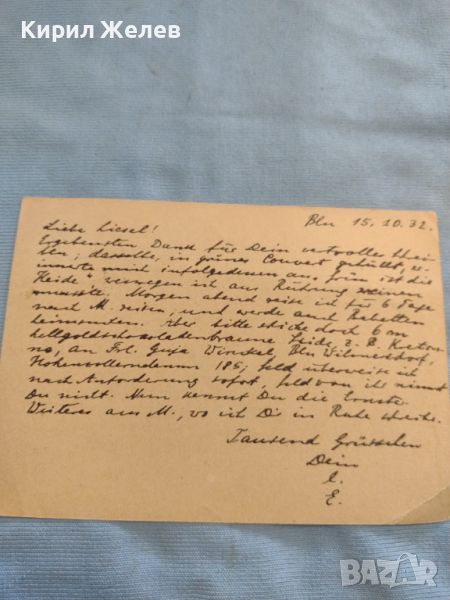 Кирил Желев
Bln 15.10.32.
Liebe Liesel!
Ergebensten Dank für Dein wertvolles Schrei-
ben; dasselbe, in grünes Couvert gehüllt, er-
innerte mich infolgedessen an „Grün ist die
Heide", weswegen ich aus Rührung weinen
musste. Morgen abend reise ich für 6 Tage
nach M. und werde auch Babetten
heimsuchen. Aber bitte schicke doch 6 m
hellgoldschokoladenbraune Seide, z. B.
an Frl. Winckel, Bln Wilmersdorf,
Hohenzollerndamm 185; Geld überweise ich
nach Anforderung sofort, Geld von ihr nimmst
Du nicht. Nun kennst Du die
Weiteres aus M., wo ich Dir in Ruhe schreibe.
Tausend Grüsschen
Dein
E.
BAZAR